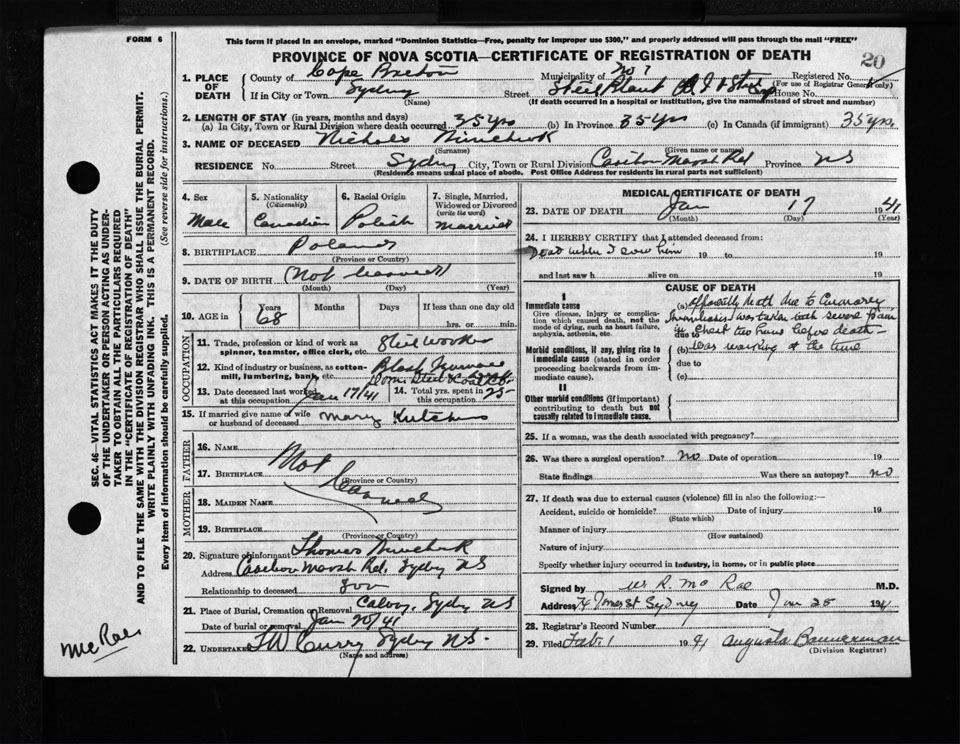 FORM 6
This form if placed in an envelope, marked "Dominion Statistics—Free, penalty for improper use $300," and properly addressed will pass through the mail "FREE"
PROVINCE OF NOVA SCOTIA—CERTIFICATE OF REGISTRATION OF DEATH
20
1. PLACE OF DEATH
County of Cape Breton Municipality of No 7 Registered No.
(For use of Registrar General only)
If in City or Town Sydney Street Steel Plant House No.
(Name) (If death occurred in a hospital or institution, give the name instead of street and number)
2. LENGTH OF STAY (in years, months and days)
(a) In City, Town or Rural Division where death occurred 35 yrs (b) In Province 35 yrs (c) In Canada (if immigrant) 35 yrs.
3. NAME OF DECEASED Nicholas
(Surname) (Given name or names)
RESIDENCE No. Street Sydney City, Town or Rural Division Marsh Rd Province NS
(Residence means usual place of abode. Post Office Address for residents in rural parts not sufficient)
4. Sex Male
5. Nationality (Citizenship) Canadian
6. Racial Origin Polish
7. Single, Married, Widowed or Divorced (write the word) Married
8. BIRTHPLACE Poland
(Province or Country)
9. DATE OF BIRTH (Not learned)
(Month) (Day) (Year)
10. AGE in Years 68 Months Days If less than one day old
hrs. or min.
OCCUPATION
11. Trade, profession or kind of work as spinner, teamster, office clerk, etc. Steel worker
12. Kind of industry or business, as cotton-mill, lumbering, bank, etc. Blast Furnace
Dom. Steel & Coal
13. Date deceased last worked at this occupation Jan 17/41
14. Total yrs. spent in this occupation 25
15. If married give name of wife or husband of deceased Mary
FATHER
16. NAME Not
17. BIRTHPLACE learned
(Province or Country)
MOTHER
18. MAIDEN NAME
19. BIRTHPLACE
(Province or Country)
20. Signature of informant Thomas
Address Marsh Rd, Sydney NS
Relationship to deceased Son
21. Place of Burial, Cremation or Removal Calvary, Sydney NS
Date of burial or removal Jan 20/41
22. UNDERTAKER TW Curry Sydney NS.
(Name and address)
MEDICAL CERTIFICATE OF DEATH
23. DATE OF DEATH Jan 17 1941
(Month) (Day) (Year)
24. I HEREBY CERTIFY that I attended deceased from:
Dead when I saw him 19 to 19
and last saw h alive on 19
CAUSE OF DEATH
I
Immediate cause
Give disease, injury or complication which caused death, not the mode of dying, such as heart failure, asphyxia, asthenia, etc.
(a) Apparently death due to Coronary
Thrombosis, Was taken with severe Pain
due to in Chest two hours before death—
Morbid conditions, if any, giving rise to immediate cause (stated in order proceeding backwards from immediate cause).
(b) Was working at the time
due to
(c)
II
Other morbid conditions (if important) contributing to death but not causally related to immediate cause.
25. If a woman, was the death associated with pregnancy?
26. Was there a surgical operation? No Date of operation 19
State findings Was there an autopsy? no
27. If death was due to external causes (violence) fill in also the following:—
Accident, suicide or homicide? Date of injury 19
(State which)
Manner of injury
(How sustained)
Nature of injury
Specify whether injury occurred in industry, in home, or in public place
Signed by W R. McRae M.D.
Address Sydney Date Jan 25 1941
28. Registrar's Record Number
29. Filed Feb. 1 1941 Augusta Bannerman
(Division Registrar)
SEC. 46—VITAL STATISTICS ACT MAKES IT THE DUTY
OF THE UNDERTAKER OR PERSON ACTING AS UNDER-
TAKER TO OBTAIN ALL THE PARTICULARS REQUIRED
IN THE "CERTIFICATE OF REGISTRATION OF DEATH"
AND TO FILE THE SAME WITH THE DIVISION REGISTRAR WHO SHALL ISSUE THE BURIAL PERMIT.
WRITE PLAINLY WITH UNFADING INK. THIS IS A PERMANENT RECORD.
Every item of information should be carefully supplied. (See reverse side for instructions).
McRae